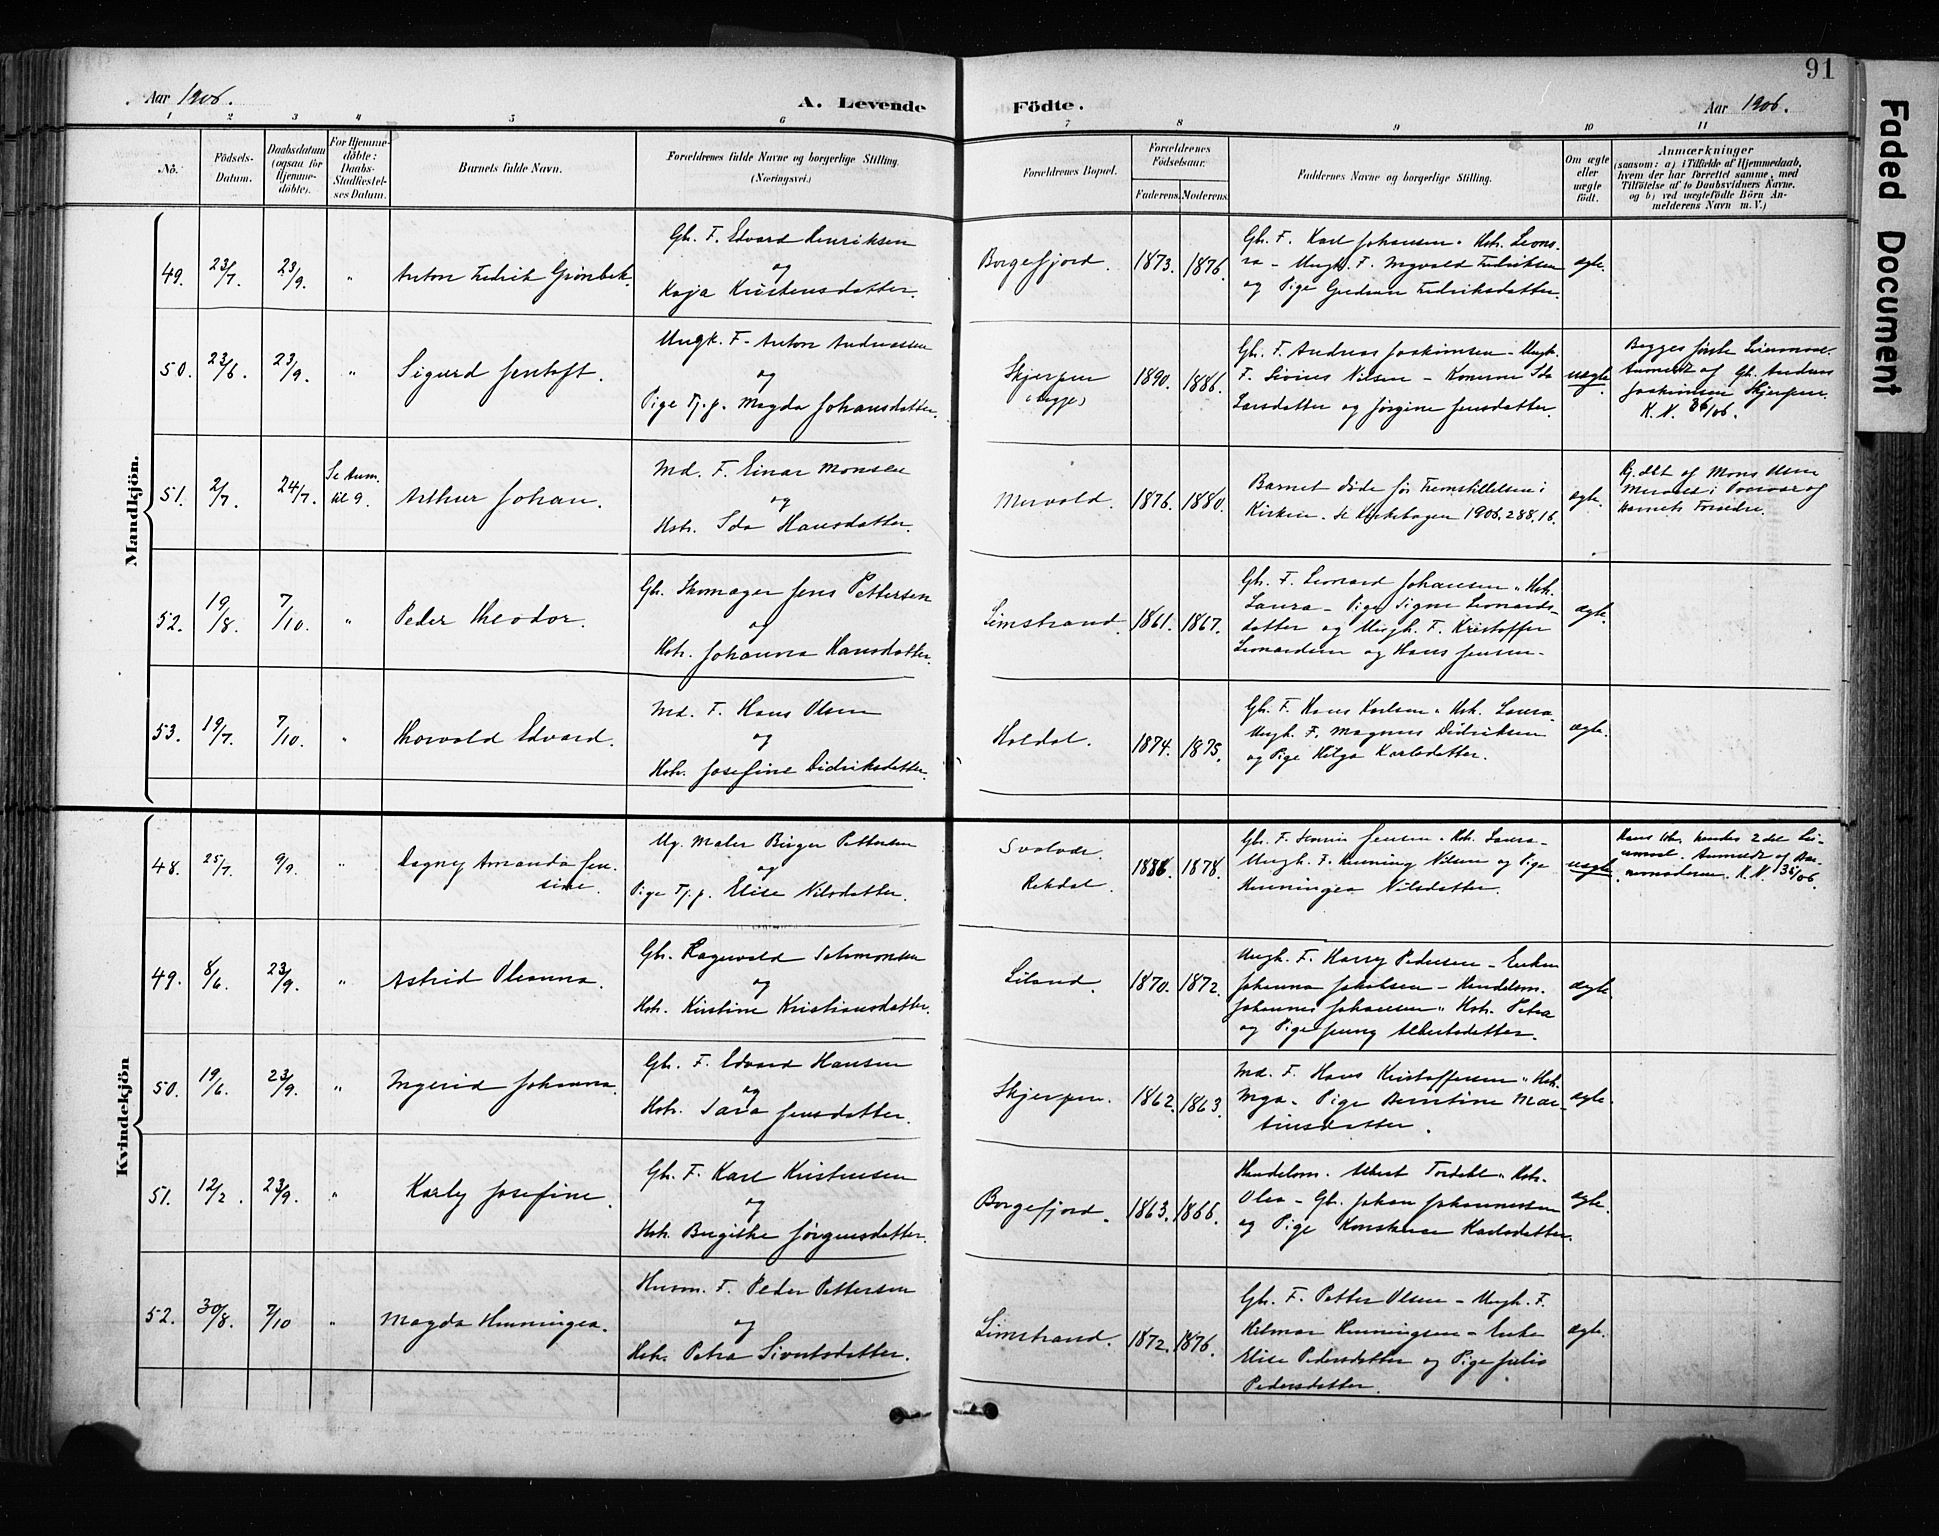 Aar 1906.
A. Levende
Födte.
Aar 1906.
91
Faded Document
1 2 3 4 5 6 7 8 9 10 11
No.
Födsels-Datum.
Daabsdatum (ogsaa for Hjemme-döbte).
For Hjemme-döbte: Daabs-Stadfæstel-ses Datum.
Barnets fulde Navn.
Forældrenes fulde Navne og borgerlige Stilling.
(Næringsvei.)
Forældrenes Bopæl.
Forældrenes Födselsaar.
Faderens. Moderens.
Faddernes Navne og borgerlige Stilling.
Om ægte eller uægte födt.
Anmærkninger
(saasom: a) i Tilfælde af Hjemmedaab,
hvem der har forrettet samme, med
Tilföielse af to Daabsvidners Navne.
og b) ved uægtefödte Börn An-
melderens Navn m. V.)
Mandkjön.
49. 23/7. 23/9. " Anton Fredrik Grönbek.
Gb. F. Edvard Henriksen
og
Kaja Kristensdatter.
Borgefjord. 1873. 1876.
Gb. F. Karl Johansen " Hstr. Leono-
ra - Ungk. F. Ingvald Fredriksen
og Pige Gudrun Fredriksdatter.
ægte.
50. 23/6. 23/9. " Sigurd Jentoft.
Ungk. F. Anton Andreassen
og
Pige Tj. p. Magda Johansdatter.
Skjerpen
(begge)
1890. 1886.
Gb. F. Andreas Joakimsen - Ungk.
F. Sivius Nilsen - Konerne Ida
Larsdatter og Jörgine Jensdatter.
uægte.
Begges förste Leiermaal.
Anmeldt af Gb. Andreas
Joakimsen Skjerpen.
K. N. 36/06.
51. 2/7. 24/7. Se Anm.
til 9.
Arthur Johan.
Md. F. Einar Monsen
og
Hstr. Ida Hansdatter.
1876. 1880.
Barnet döde för Fremstillelsen i
Kirken. Se Kirkebogen 1906. 288. 16.
ægte.
52. 19/8. 7/10. " Peder Theodor.
Gb. Skomager Jens Pettersen
og
Hstr. Johanna Hansdatter.
Limstrand. 1861. 1867.
Gb. F. Leonard Johansen " Hstr.
Laura - Pige Signe Leonards-
datter og Ungk. F. Kristoffer
Leonardsen og Hans Jensen -
ægte.
53. 19/7. 7/10. " Thorvald Edvard.
Md. F. Hans Olsen
og
Hstr. Josefine Didriksdatter.
Holdal. 1874. 1875.
Gb. F. Hans Karlsen " Hstr. Laura -
Ungk. F. Magnus Didriksen
og Pige Helga Karlsdatter.
ægte.
Kvindekjön
48. 25/7. 9/9. " Dagny Amanda Jen-
sine.
Ug. Maler Birger Pettersen
og
Pige Tj. p. Elise Nilsdatter.
Svolvær.
Rekdal.
1886. 1878.
Gb. F. Jensen " Hstr. Laura -
Ungk. F. Henning Nilsen og Pige
Henningea Nilsdatter.
uægte.
Hans 1ste, hendes 2det Lei-
ermaal. Anmeldt af Bar-
nemoderen. K. N. 35/06.
49. 8/6. 23/9. " Astrid Oleanna.
Gb. Ragnvald Salmonsen
og
Hstr. Kirstine Kristiansdatter.
Liland. 1870. 1872.
Ungk. F. Harry Pedersen - Enken
Johanna Jakobsen - Handelsm.
Johannes Johansen " Hstr. Petra
og Pige Jenny Albertsdatter.
ægte.
50. 19/6. 23/9. " Ingerid Johanna.
Gb. F. Edvard Hansen
og
Hstr. Sara Jensdatter.
Skjerpen. 1862. 1863.
Md. F. Hans Kristoffersen " Hstr.
Inga - Pige Berntine Mar-
tinsdatter.
ægte.
51. 12/2. 23/9. " Karly Josefine.
Gb. F. Karl Kristensen
og
Hstr. Birgithe Jörgensdatter.
Borgefjord. 1863. 1866.
Handelsm. Albert Tordahl " Hstr.
Olea - Gb. Johan Johannessen
og Pige Konstanse Karlsdatter.
ægte.
52. 30/8. 7/10 " Magda Henningea.
Husm. F. Peder Pettersen
og
Hstr. Petra Sivertsdatter.
Limstrand. 1872. 1876.
Gb. F. Petter Olsen - Ungk. F.
Hilmar Henningsen - Enke
Elise Pedersdatter og Pige Julie
Pedersdatter.
ægte.